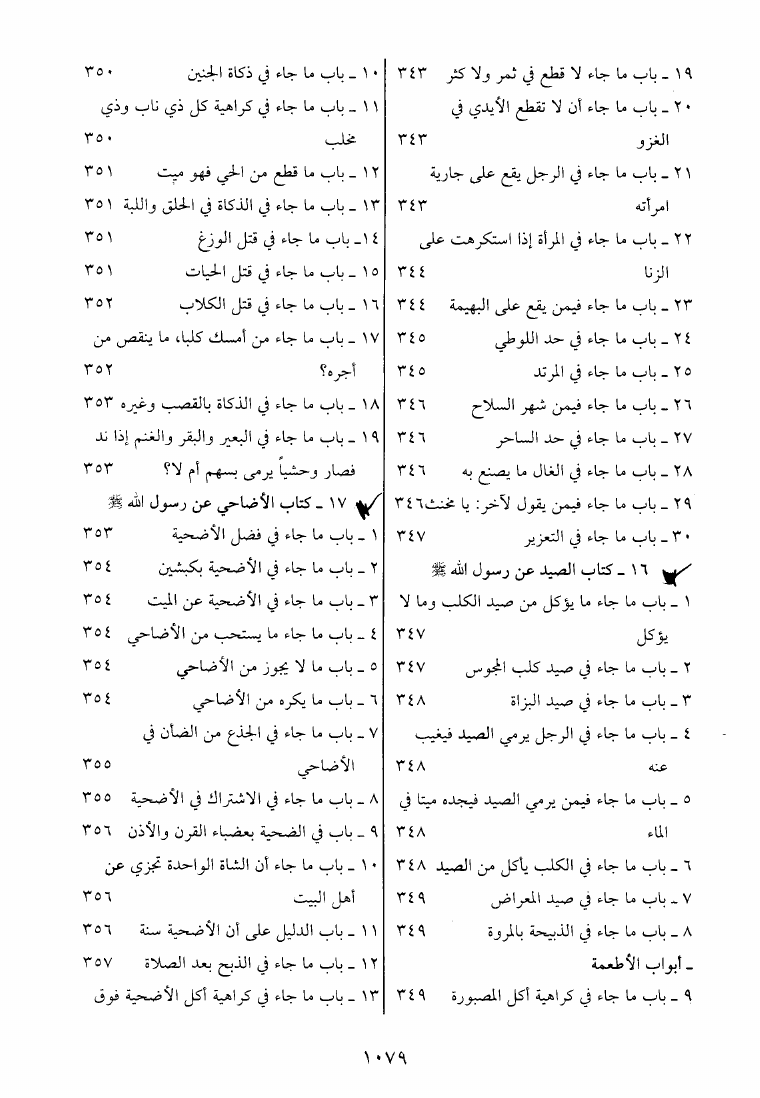 ١٩ ـ باب ما جاء لا قطع في ثمر ولا كثر ٣٤٣
٢٠ ـ باب ما جاء أن لا تقطع الأيدي في
الغزو ٣٤٣
٢١ ـ باب ما جاء في الرجل يقع على جارية
امرأته ٣٤٣
٢٢ ـ باب ما جاء في المرأة إذا استكرهت على
الزنا ٣٤٤
٢٣ ـ باب ما جاء فيمن يقع على البهيمة ٣٤٤
٢٤ ـ باب ما جاء في حد اللوطي ٣٤٥
٢٥ ـ باب ما جاء في المرتد ٣٤٥
٢٦ ـ باب ما جاء فيمن شهر السلاح ٣٤٦
٢٧ ـ باب ما جاء في حد الساحر ٣٤٦
٢٨ ـ باب ما جاء في الغال ما يصنع به ٣٤٦
٢٩ ـ باب ما جاء فيمن يقول لآخر: يا مخنث ٣٤٦
٣٠ ـ باب ما جاء في التعزير ٣٤٧
١٦ ـ كتاب الصيد عن رسول الله ﷺ
١ ـ باب ما جاء ما يؤكل من صيد الكلب وما لا
يؤكل ٣٤٧
٢ ـ باب ما جاء في صيد كلب المجوس ٣٤٧
٣ ـ باب ما جاء في صيد البزاة ٣٤٨
٤ ـ باب ما جاء في الرجل يرمي الصيد فيغيب
عنه ٣٤٨
٥ ـ باب ما جاء فيمن يرمي الصيد فيجده ميتا في
الماء ٣٤٨
٦ ـ باب ما جاء في الكلب يأكل من الصيد ٣٤٨
٧ ـ باب ما جاء في صيد المعراض ٣٤٩
٨ ـ باب ما جاء في الذبيحة بالمروة ٣٤٩
ـ أبواب الأطعمة
٩ ـ باب ما جاء في كراهية أكل المصبورة ٣٤٩
١٠ ـ باب ما جاء في ذكاة الجنين ٣٥٠
١١ ـ باب ما جاء في كراهية كل ذي ناب وذي
مخلب ٣٥٠
١٢ ـ باب ما قطع من الحي فهو ميت ٣٥١
١٣ ـ باب ما جاء في الذكاة في الحلق واللبة ٣٥١
١٤ـ باب ما جاء في قتل الوزغ ٣٥١
١٥ ـ باب ما جاء في قتل الحيات ٣٥١
١٦ ـ باب ما جاء في قتل الكلاب ٣٥٢
١٧ ـ باب ما جاء من أمسك كلبا، ما ينقص من
أجره؟ ٣٥٢
١٨ ـ باب ما جاء في الذكاة بالقصب وغيره ٣٥٣
١٩ ـ باب ما جاء في البعير والبقر والغنم إذا ند
فصار وحشياً يرمى بسهم أم لا؟ ٣٥٣
١٧ ـ كتاب الأضاحي عن رسول الله ﷺ
١ ـ باب ما جاء في فضل الأضحية ٣٥٣
٢ ـ باب ما جاء في الأضحية بكبشين ٣٥٤
٣ ـ باب ما جاء في الأضحية عن الميت ٣٥٤
٤ ـ باب ما جاء ما يستحب من الأضاحي ٣٥٤
٥ ـ باب ما لا يجوز من الأضاحي ٣٥٤
٦ ـ باب ما يكره من الأضاحي ٣٥٤
٧ ـ باب ما جاء في الجذع من الضأن في
الأضاحي ٣٥٥
٨ ـ باب ما جاء في الاشتراك في الأضحية ٣٥٥
٩ ـ باب في الضحية بعضباء القرن والأذن ٣٥٦
١٠ ـ باب ما جاء أن الشاة الواحدة تجزي عن
أهل البيت ٣٥٦
١١ ـ باب الدليل على أن الأضحية سنة ٣٥٦
١٢ ـ باب ما جاء في الذبح بعد الصلاة ٣٥٧
١٣ ـ باب ما جاء في كراهية أكل الأضحية فوق
١٠٧٩